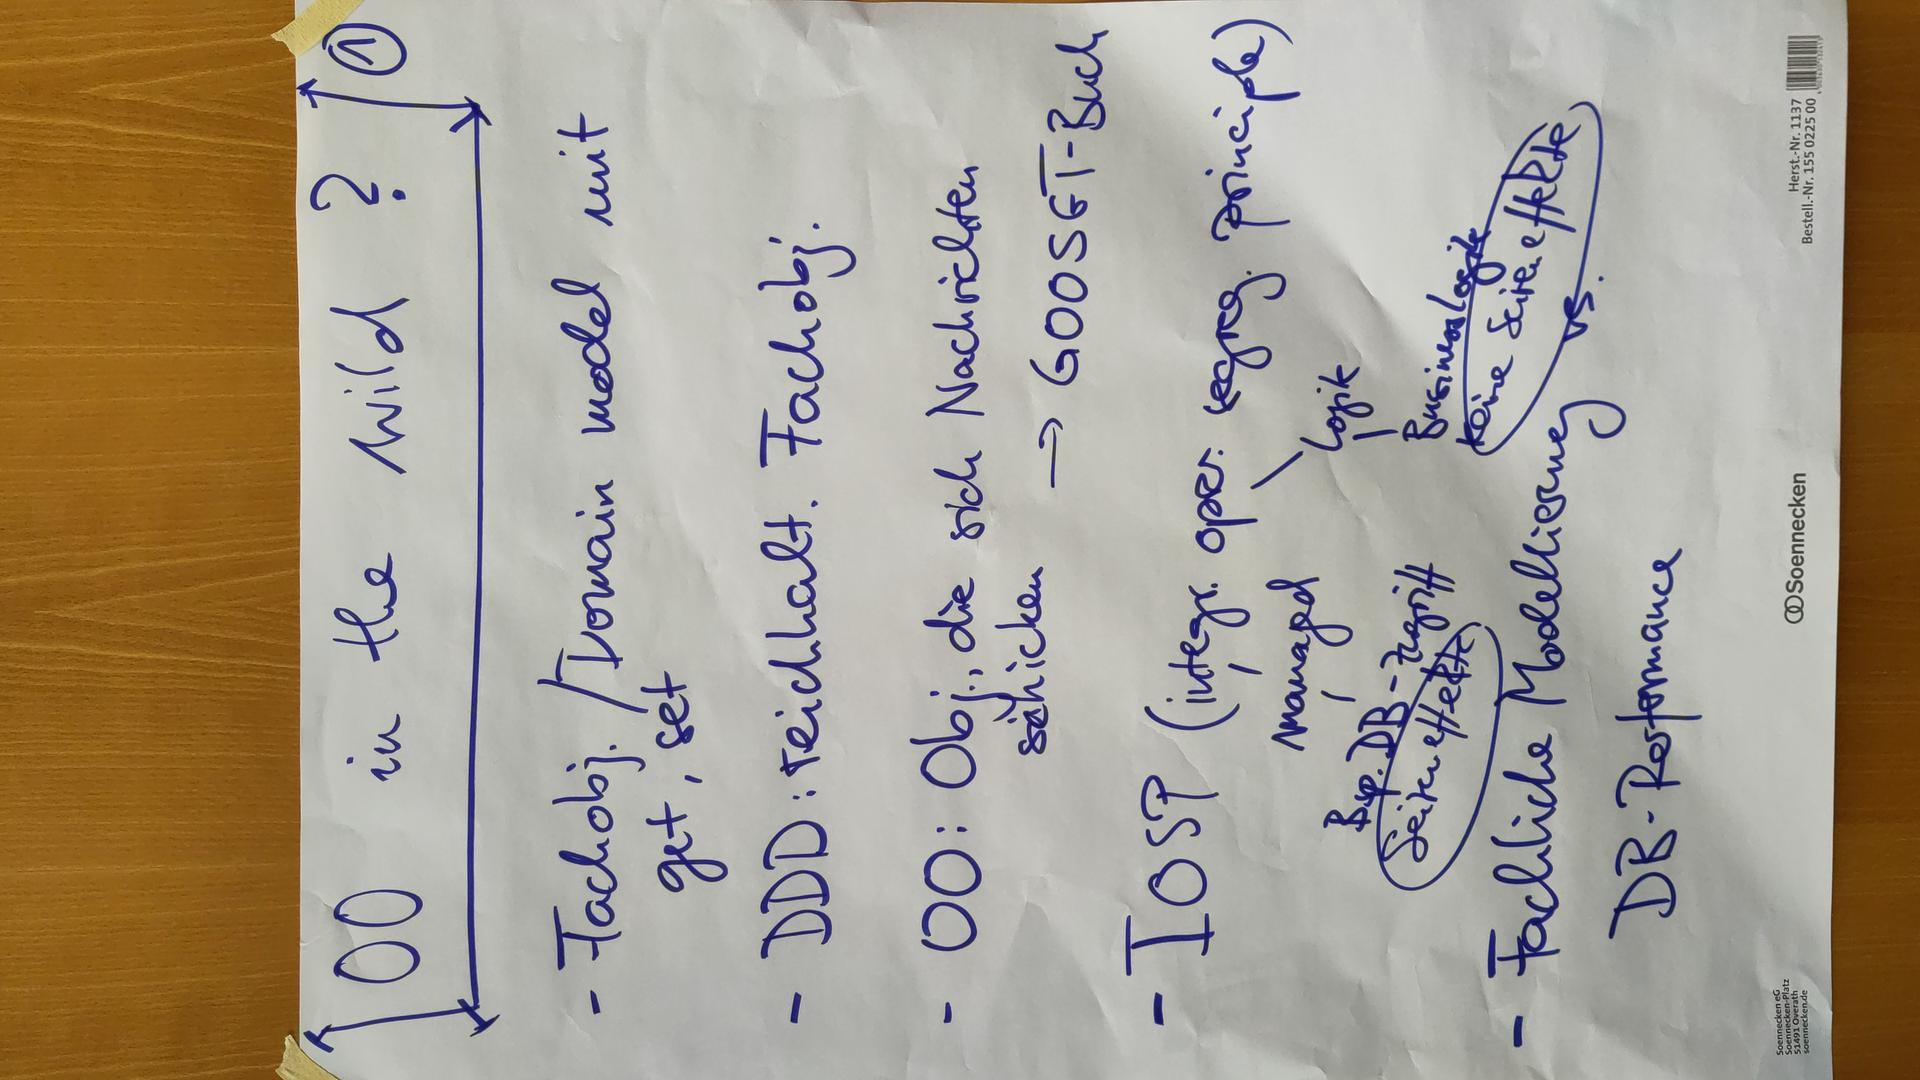 OO in the wild ? ①
- Fachobj. / Domain model mit
get, set
- DDD: reichhalt. Fachobj.
- OO: Obj., die sich Nachrichten
schicken
→ GOOSGT-Buch
- IOSP (integr. oper. segreg. principle)
managed
Logik
Bsp. DB-Zugriff
Seiteneffekte
Businesslogik
keine Seiteneffekte
- Fachliche Modellierung vs.
DB-Performance
Soennecken eG
Soennecken-Platz
51491 Overath
soennecken.de
Soennecken
Herst.-Nr. 1137
Bestell.-Nr. 155 0225 00